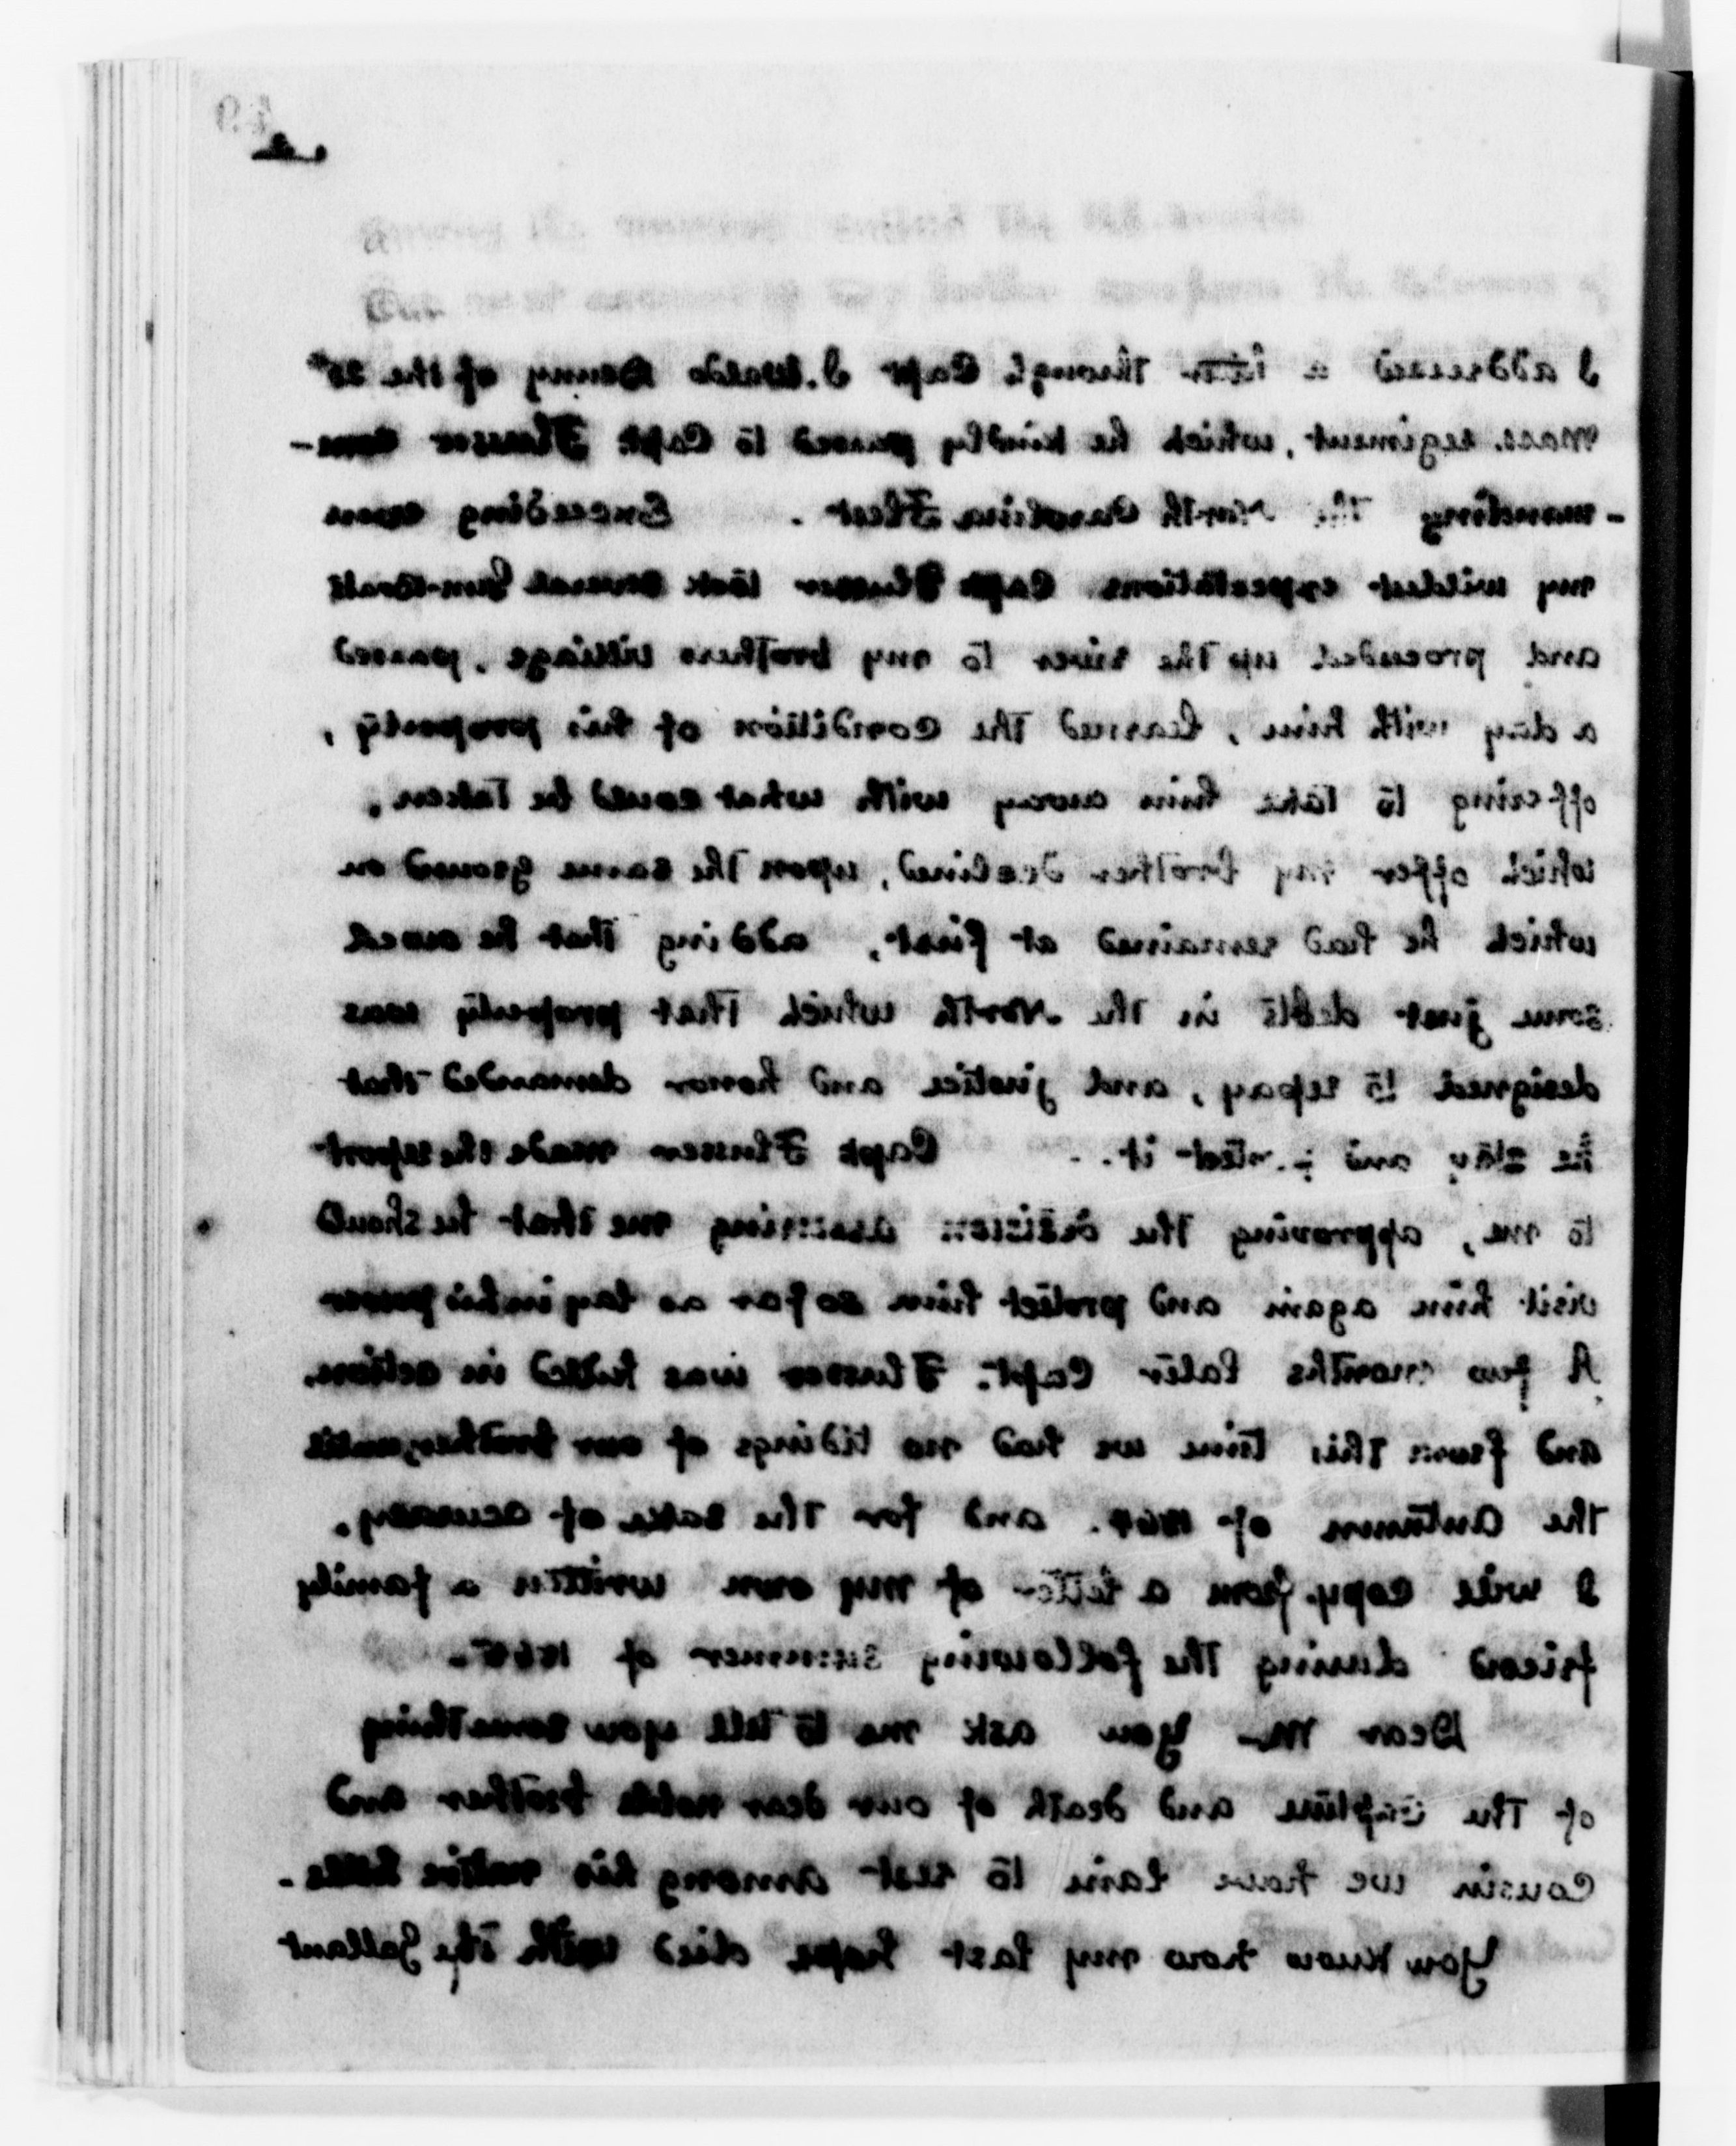 I addressed a letter through Capt J. Waldo Denny of the 25th
Mass. regiment, which he kindly passed to Capt. Flusser com-
-manding the North Carolina Fleet. Exceeding even
my wildest expectations Capt Flusser took several Gun-boats
and proceeded up the river to my brothers village, passed
a day with him, learned the condition of his property,
offering to take him away with what could be taken,
which offer my brother declined, upon the same ground on
which he had remained at first, adding that he owed
some just debts in the North which that property was
designed to repay, and justice and honor demanded that
he stay and protect it. Capt Flusser made the report
to me, approving the decision assuring me that he should
visit him again and protect him so far as lay in his power
A few months later Capt. Flusser was killed in action,
and from this time we had no tidings of our brother, until
the autumn of 1864. and for the sake of accuracy,
I will copy from a letter of my own written a family
friend during the following summer of 1865.
Dear Mr You ask me to tell you something
of the capture and death of our dear noble brother and
Cousin we have lain to rest among his native hills.
You know how my last hope died with the Gallant